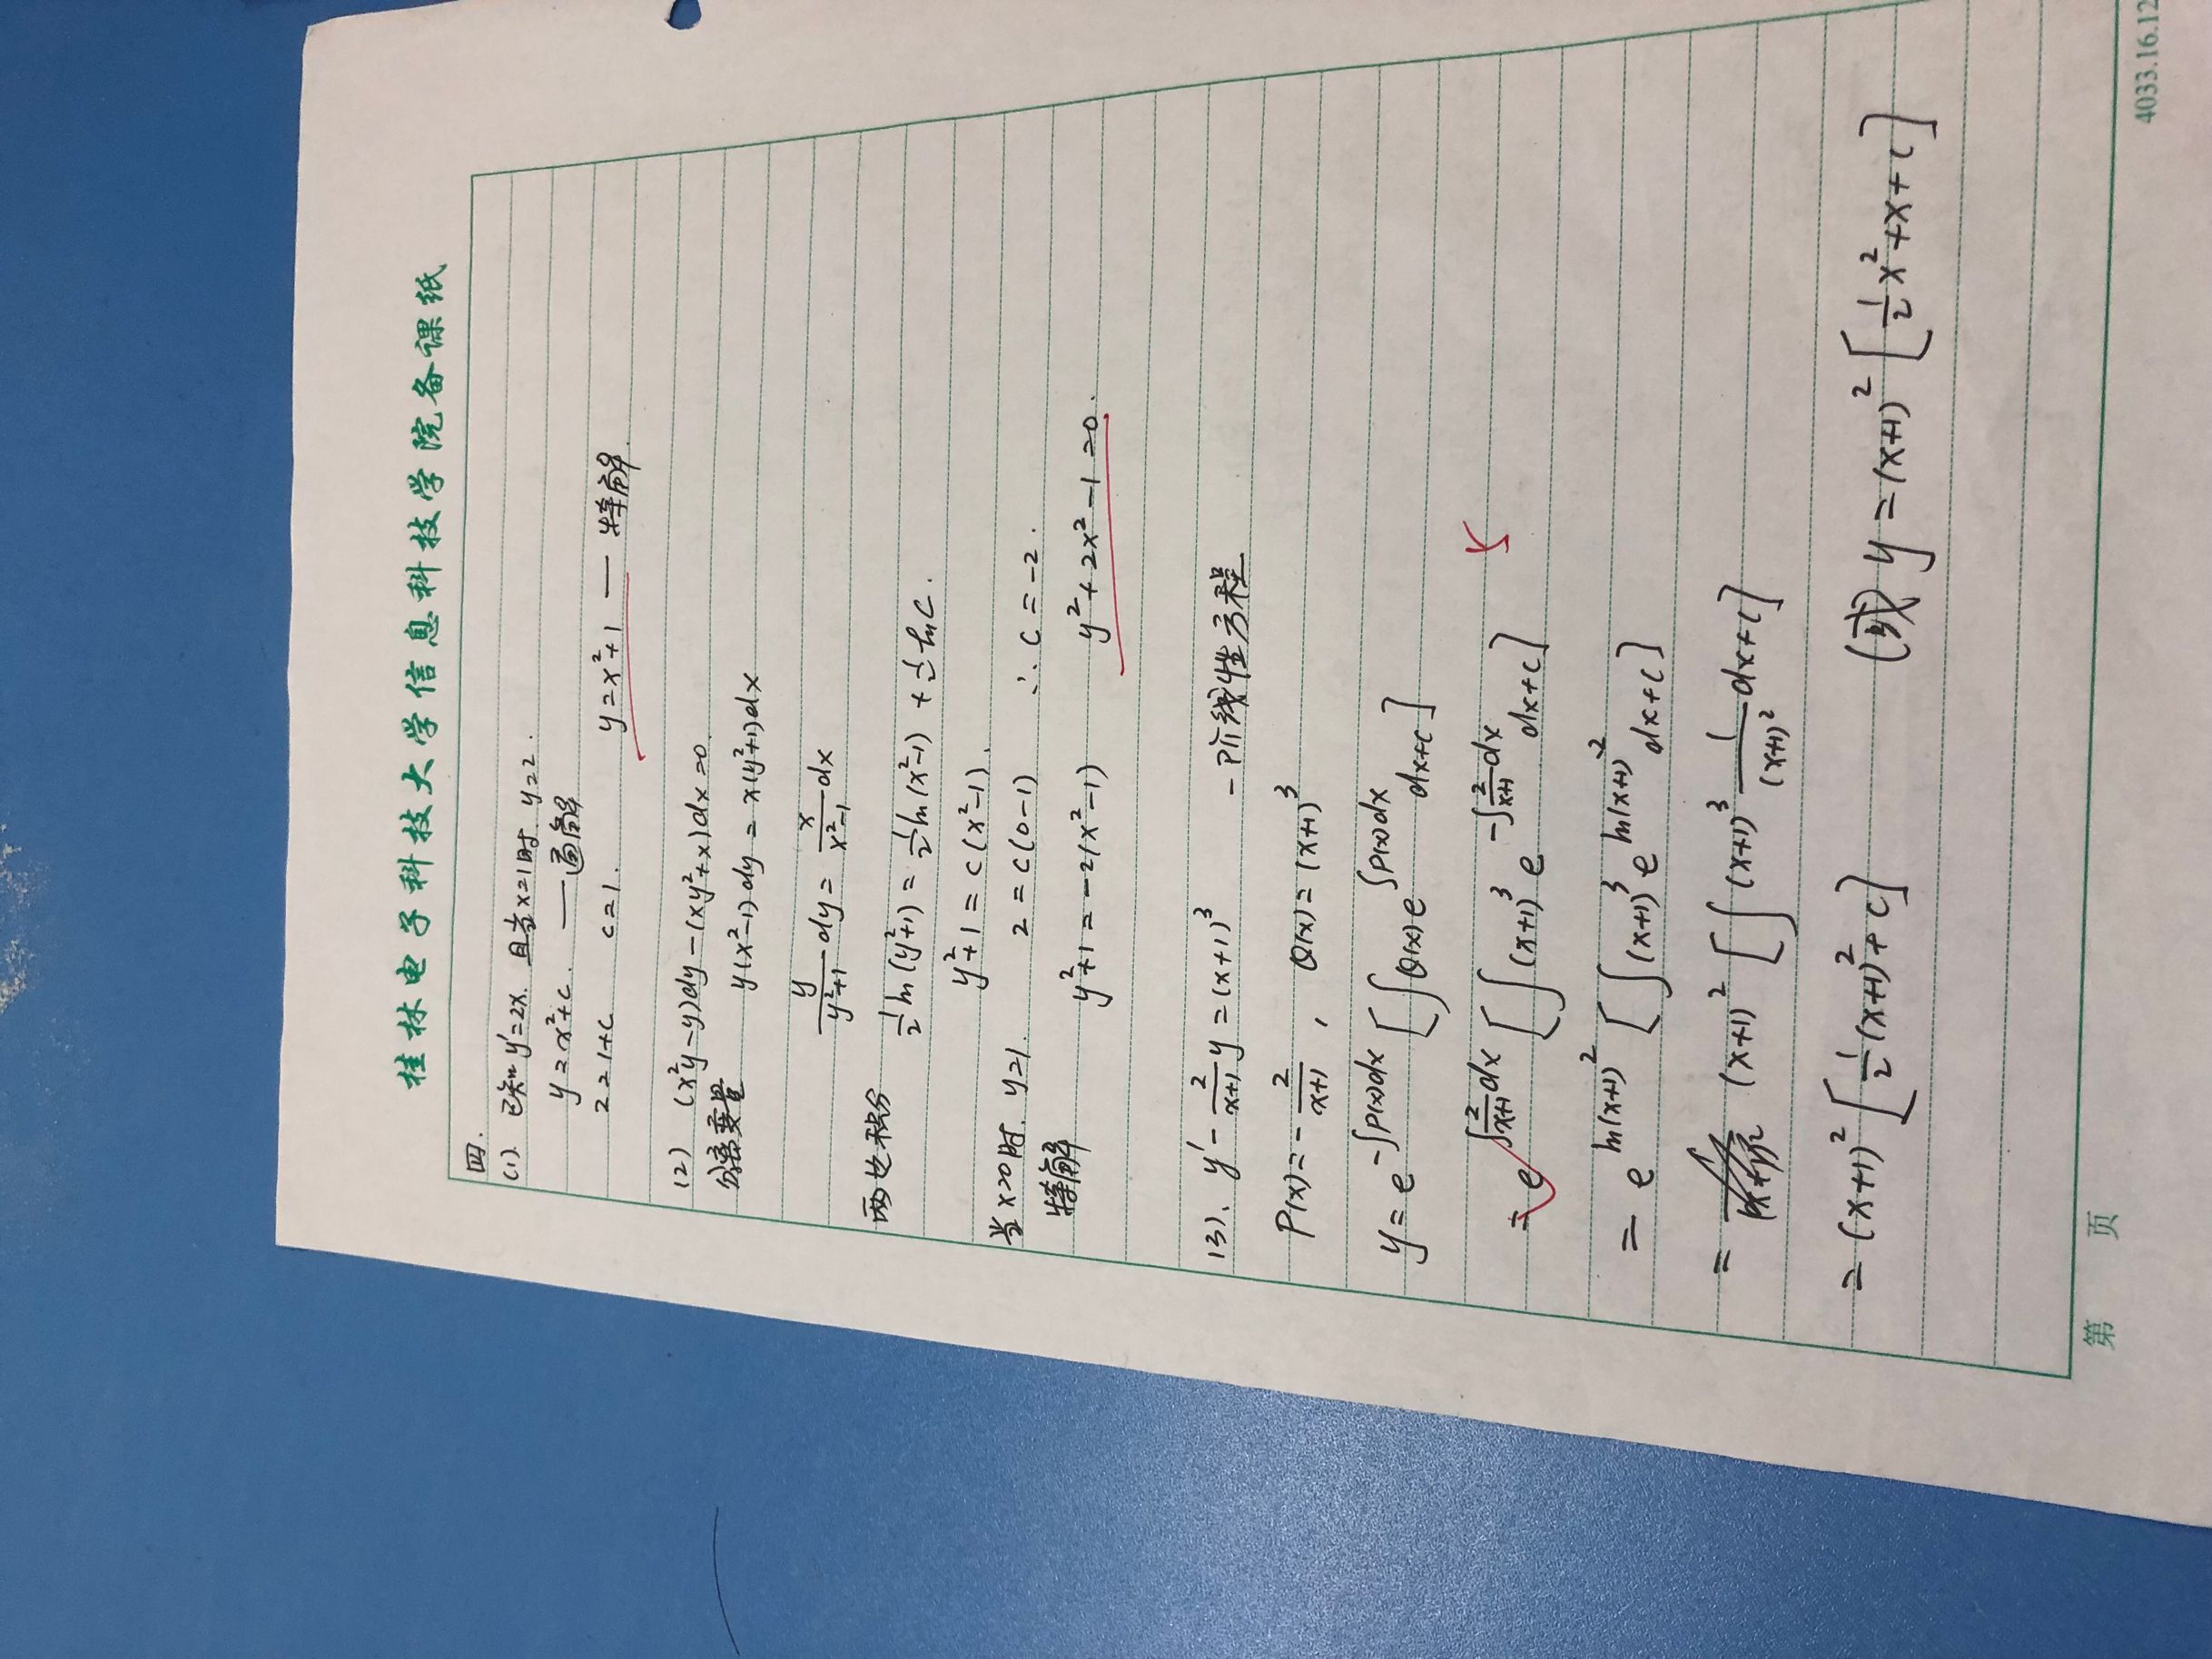 桂林电子科技大学信息科技学院备课纸
四.
(1). 已知 y′=2x. 且当x=1时. y=2.
y=x²+c. — 通解
2=1+c c=1. y=x²+1 — 特解.
(2) (x²y-y)dy-(xy²+x)dx=0.
分离变量 y(x²-1)dy = x(y²+1)dx
y/(y²+1) dy = x/(x²-1) dx
两边积分 ½ln(y²+1) = ½ln(x²-1) + ½lnC.
y²+1 = c(x²-1).
当x=0时. y=1. 2 = c(0-1) ∴ c = -2.
特解 y²+1 = -2(x²-1) y²+2x²-1=0.
(3). y′ - 2/(x+1) y = (x+1)³ 一阶线性方程
P(x) = - 2/(x+1) , Q(x) = (x+1)³
y = e^(-∫P(x)dx) [∫Q(x)e^(∫P(x)dx) dx+c]
= e^(∫2/(x+1)dx) [∫(x+1)³ e^(-∫2/(x+1)dx) dx+c] 5
= e^(ln(x+1)²) [∫(x+1)³ e^(ln(x+1)⁻²) dx+c]
= (x+1)² [∫(x+1)³ 1/(x+1)² dx+c]
= (x+1)² [½(x+1)²+c] (或) y = (x+1)² [½x²+x+c]
第 页
4033.16.12